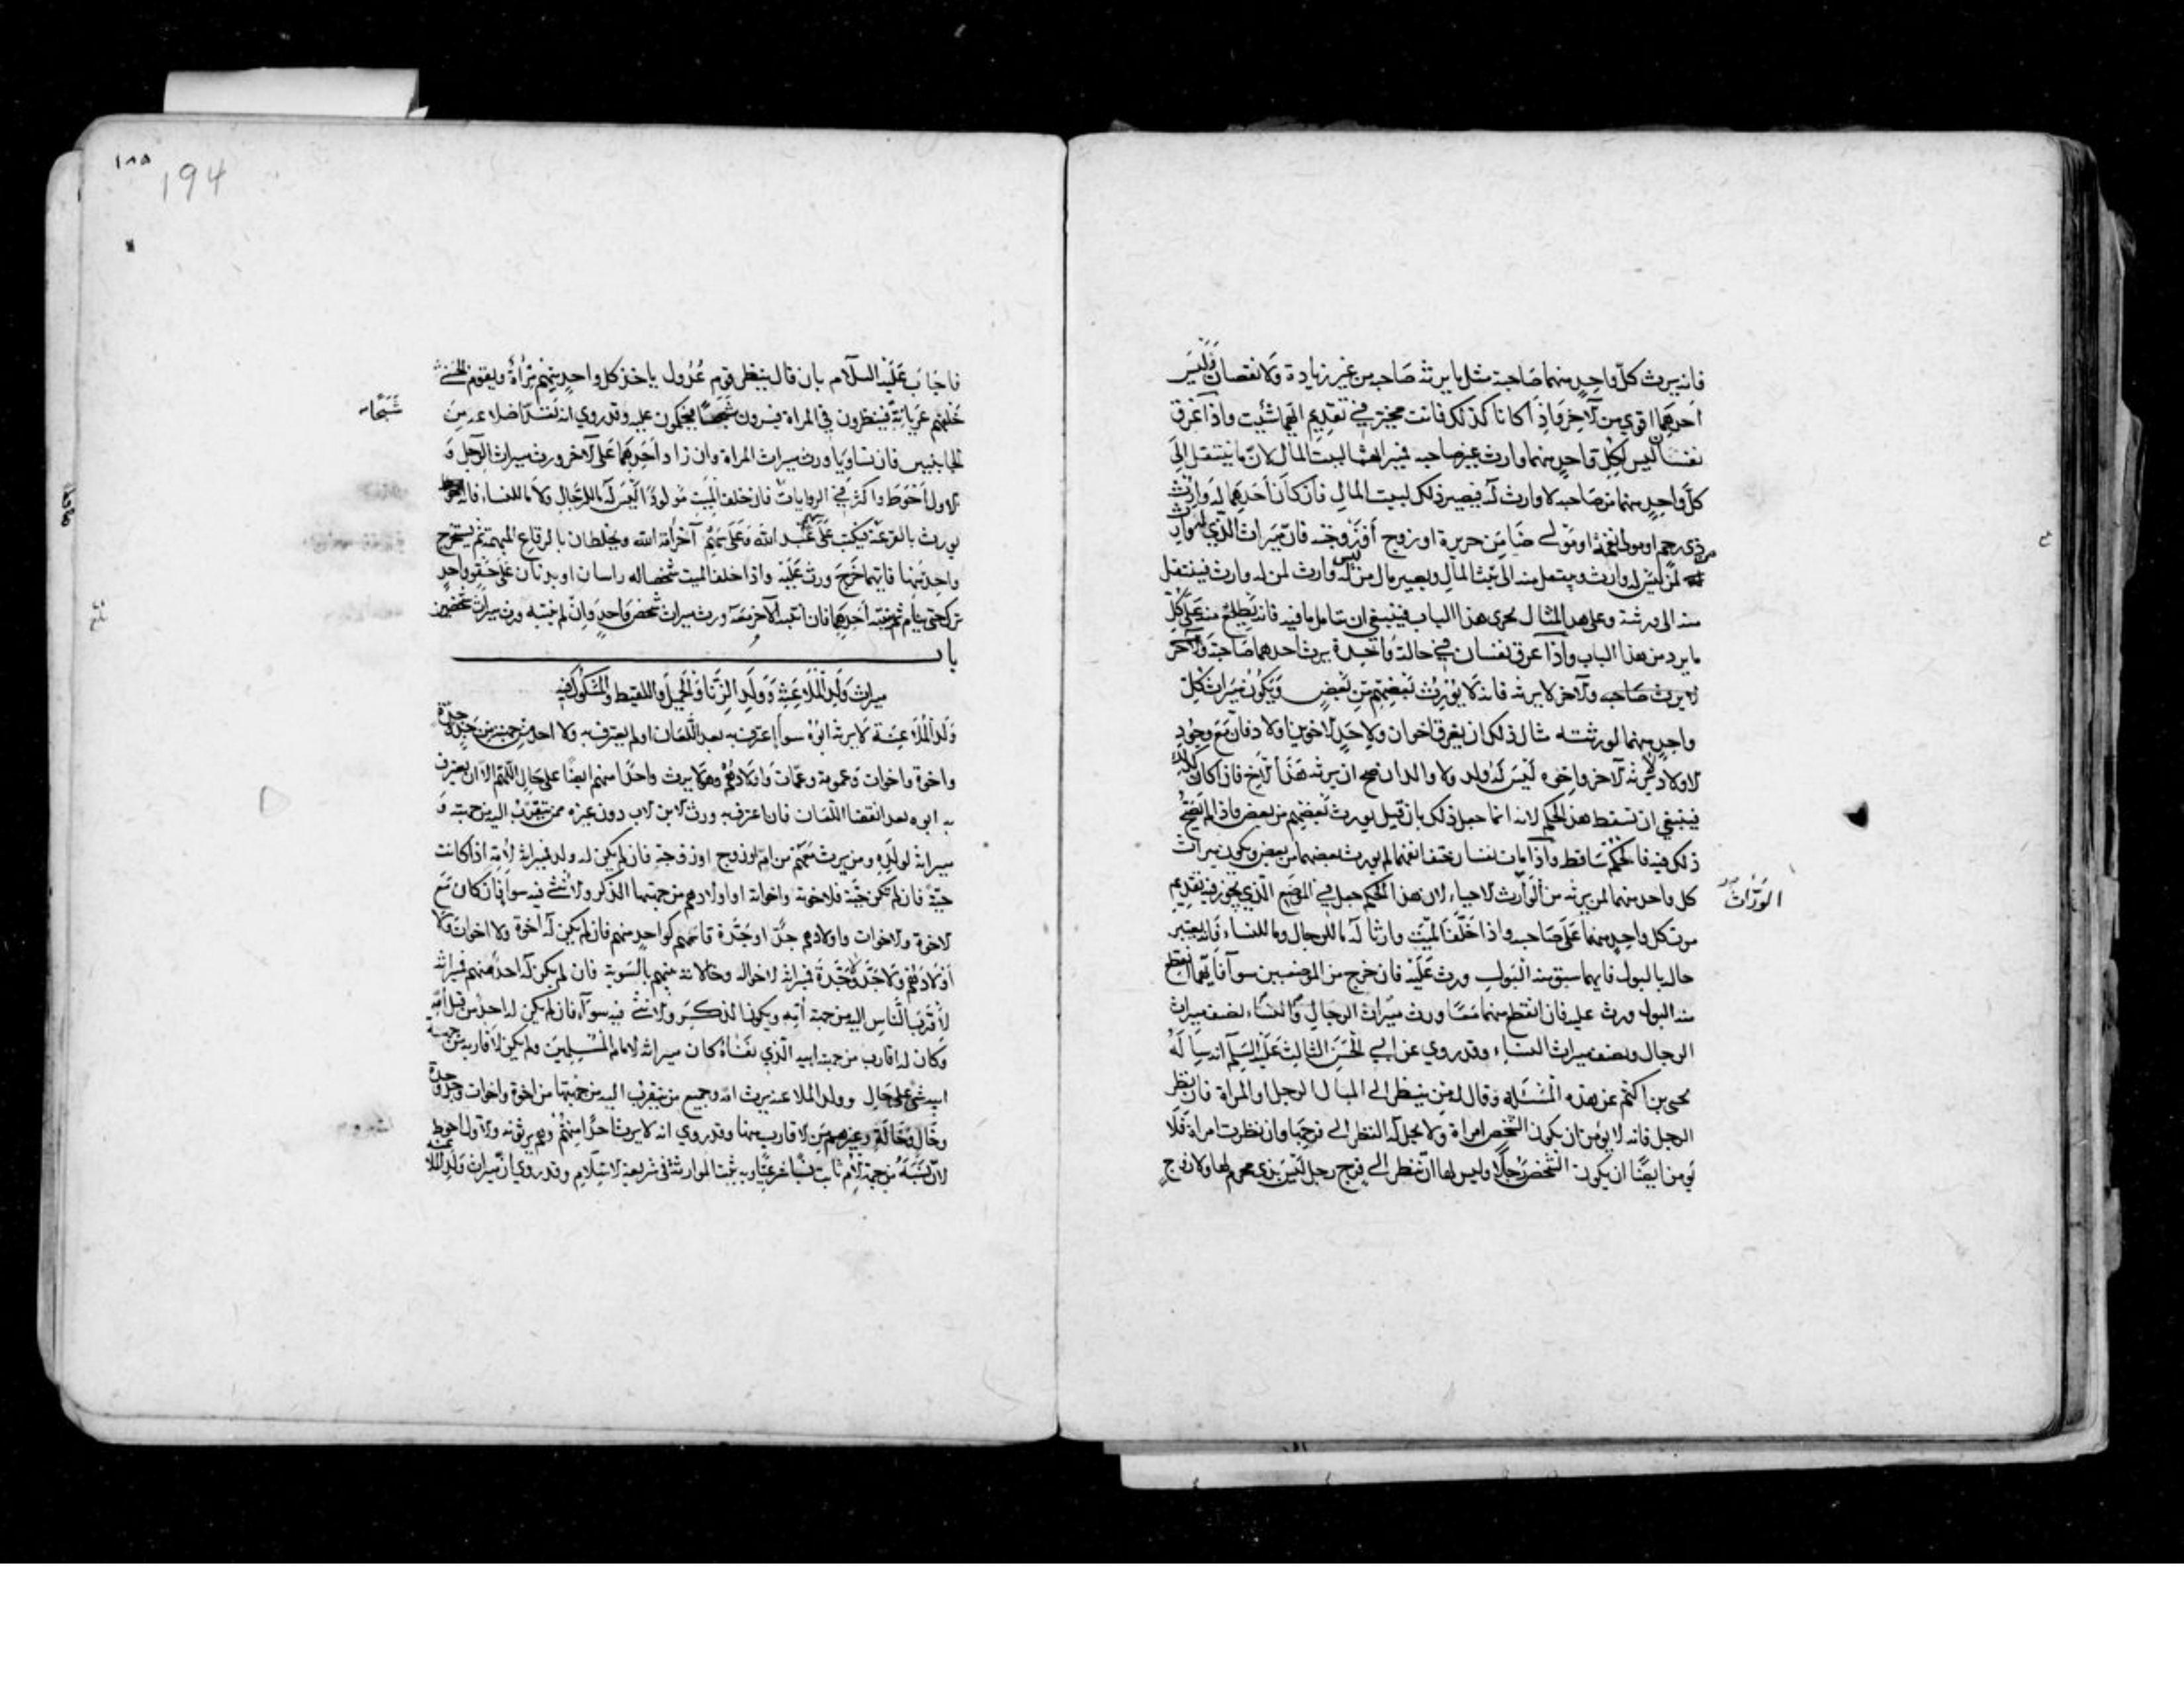 فانه يرث كلّ واحدٍ منهما صاحبه مثل ما يرثه صاحبه من غير زيادة ولا نقصان وليس
احدهما اقوى من الآخر واذا كانا كذلك فانت مخير في تقديم ايهما شئت واذا غرق
نفسان ليس لكل واحدٍ منهما وارث غير صاحبه فميراثهما لبيت المال لان ما ينتقل الى
كل واحدٍ منهما من صاحبه لا وارث له فيصير ذلك لبيت المال فان كان احدهما له وارث
من ذي رحم او مولى نعمة او مولى ضامن جريرة او زوج او زوجة فان ميراث الذي له وارث
لمن ليس له وارث وينتقل منه الى بيت المال ويصير مال من ليس له وارث لمن له وارث فينتقل
منه الى ورثته وعلى هذا المثال يجري هذا الباب فينبغي ان تتامل ما فيه فانه يطلع منه على كل
ما يرد من هذا الباب واذا غرق نفسان في حالة واحدة يرث احدهما صاحبه والآخر
لا يرث صاحبه والآخر لا يرثه فانه لا يورث بعضهم من بعضٍ ويكون ميراث كل
واحدٍ منهما لورثته مثال ذلك ان يغرق اخوان ولاحد الاخوين اولاد فان مع وجود
الاولاد لا يرثه الآخر واخوه ليس له ولد ولا والدان صح ان يرثه هذا الاخ فاذا كان كذلك
فينبغي ان تسقط هذا الحكم لانه انما جعل ذلك بان قيل يورث بعضهم من بعض فاذا لم يصح
ذلك فيه فالحكم ساقط واذا مات نفسان حتف انفهما لم يورث بعضهما من بعض ويكون ميراث
كل واحد منهما لمن يرثه من الوارث الاحياء لان هذا الحكم جعل في الموضع الذي يجوز فيه تقديم
الورّاث
موت كل واحدٍ منهما على صاحبه واذا خلّف الميّت وارثا له ما للرجال وما للنساء فانه يعتبر
حاله بالبول فايهما سبق منه البول ورث عليه فان خرج من الموضعين سوآ فايهما انقطع
منه البول ورث عليه فان انقطع منهما معًا ورث ميراث الرجال والنساء نصف ميراث
الرجال ونصف ميراث النساء وقد روي عن ابي الحسن الثالث عليه السلم انه سأله
يحيى بن اكثم عن هذه المسئلة وقال له فمن ينظر الى المبال الرجل او المراة فان نظر
الرجل فانه لا يؤمن ان يكون الشخص امراة ولا يحل له النظر الى فرجها وان نظرت امراة فلا
يومن ايضًا ان يكون الشخص رجلًا وليس لها ان تنظر الى فرج رجل ليس بذي محرم لها ولا زوج
١٨٥
194
فاجاب عليه السلام بان قال ينظر قوم عُدُول ياخذ كل واحدٍ منهم مرآة ويقوم الخنثى
خلفهم عريانةً فينظرون في المراة فيرون شبحًا فيحكمون عليه وقد روي انه تعد اضلاعه من
شَبَحًا
الجانبين فان تساويا ورث ميراث المراة وان زاد احدهما على الآخر ورث ميراث الرجل و
الاول احوط واكثر في الروايات فان خلف الميت مولودًا ليس له ما للرجال ولا ما للنساء فانه
يورث بالقرعة فيكتب على سهم عبد الله وعلى سهم آخر امة الله ويخلطان بالرقاع المبهمة ثم يستخرج
واحد منها فايهما خرج ورث عليه واذا خلف الميت شخصا له راسان او بدنان على حقو واحدٍ
ترك حتى ينام ثم ينبه احدهما فان انتبه الآخر معه ورث ميراث شخص واحدٍ وان لم ينتبه ورث ميراث شخصين
باب
ميراث ولد الملاعنة وولد الزنا والحميل واللقيط والمشكوك فيه
ولد الملاعنة لا يرثه ابوه سوآ اعترف به بعد اللعان او لم يعترف به ولا احد من جهته من جد وجدة
واخوة واخوات وعمومة وعمات واولادهم وهو لا يرث واحدًا منهم ايضًا على حال اللهم الا ان يعترف
به ابوه بعد انقضا اللعان فان اعترف به ورث الابن الاب دون غيره ممن يتقرب اليه من جهته و
ميراثه لولده ومن يرث معهم من ام او زوج او زوجة فان لم يكن له ولد فميراثه لامه اذا كانت
حيّة فان لم تكن حيّة فلاخوته واخواته او اولادهم من جهتها الذكر والانثى فيه سوآ فان كان مع
الاخوة والاخوات واولادهم جدّ او جدّة قاسمهم كواحدٍ منهم فان لم يكن له اخوة ولا اخوات ولا
اولادهم ولا جدّ ولا جدّة فميراثه لاخواله وخالاته بينهم بالسوية فان لم يكن له احد منهم فميراثه
لاقرب الناس اليه من جهة امه ويكون الذكر والانثى فيه سوآء فان لم يكن له احد من قبل امه
وكان له اقارب من جهة ابيه الذي نفاه كان ميراثه لامام المسلمين ولم يكن لاقاربه من جهة
ابيه شئ على حال وولد الملاعنة يرث امه وجميع من يتقرب اليه من جهتها من اخوة واخوات وجد وجدة
وخال وخالة وغيرهم من الاقارب منها وقد روي انه لا يرث احدًا منهم وهم يرثونه والاول احوط
لان نسبه من جهة الام ثابت نسبا شرعيا وبه يثبت الموارثة في شريعة الاسلام وقد روي ان ميراث ولد الملاعنة